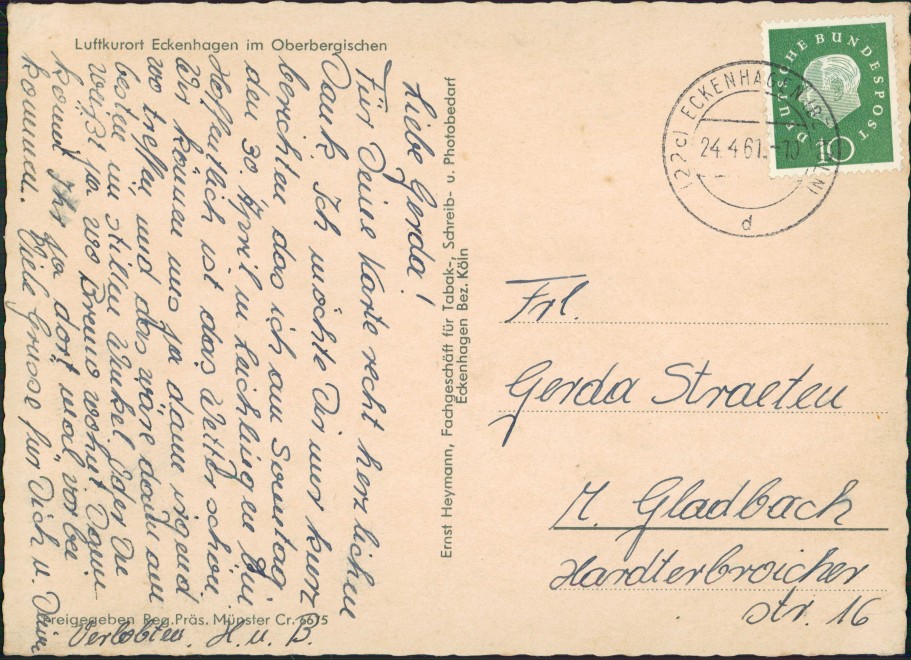 Luftkurort Eckenhagen im Oberbergischen
Liebe Gerda!
Für Deine Karte recht herzlichen
Dank. Ich möchte Dir nur kurz
berichten das ich am Sonntag
den 30. April in Leichlingen bin
Hoffentlich ist das Wetter schön.
Wir können uns ja dann irgend
wo treffen und das wäre dann am
besten im stillen Winkel. Oder Du
weißt ja wo Bruno wohnt. Dann
kommt Ihr ja dort mal vorbei
kommen. Viele Grüsse für Dich u. Deinen
Verlobten. H. u. B.
Freigegeben Reg.Präs. Münster Cr. 6675
Ernst Heymann, Fachgeschäft für Tabak-, Schreib- u. Photobedarf
Eckenhagen Bez. Köln
DEUTSCHE BUNDESPOST
10
(22c) ECKENHAGEN
24.4.61.-10
d
Frl.
Gerda Straeten
M. Gladbach
Hardterbroicher
str. 16